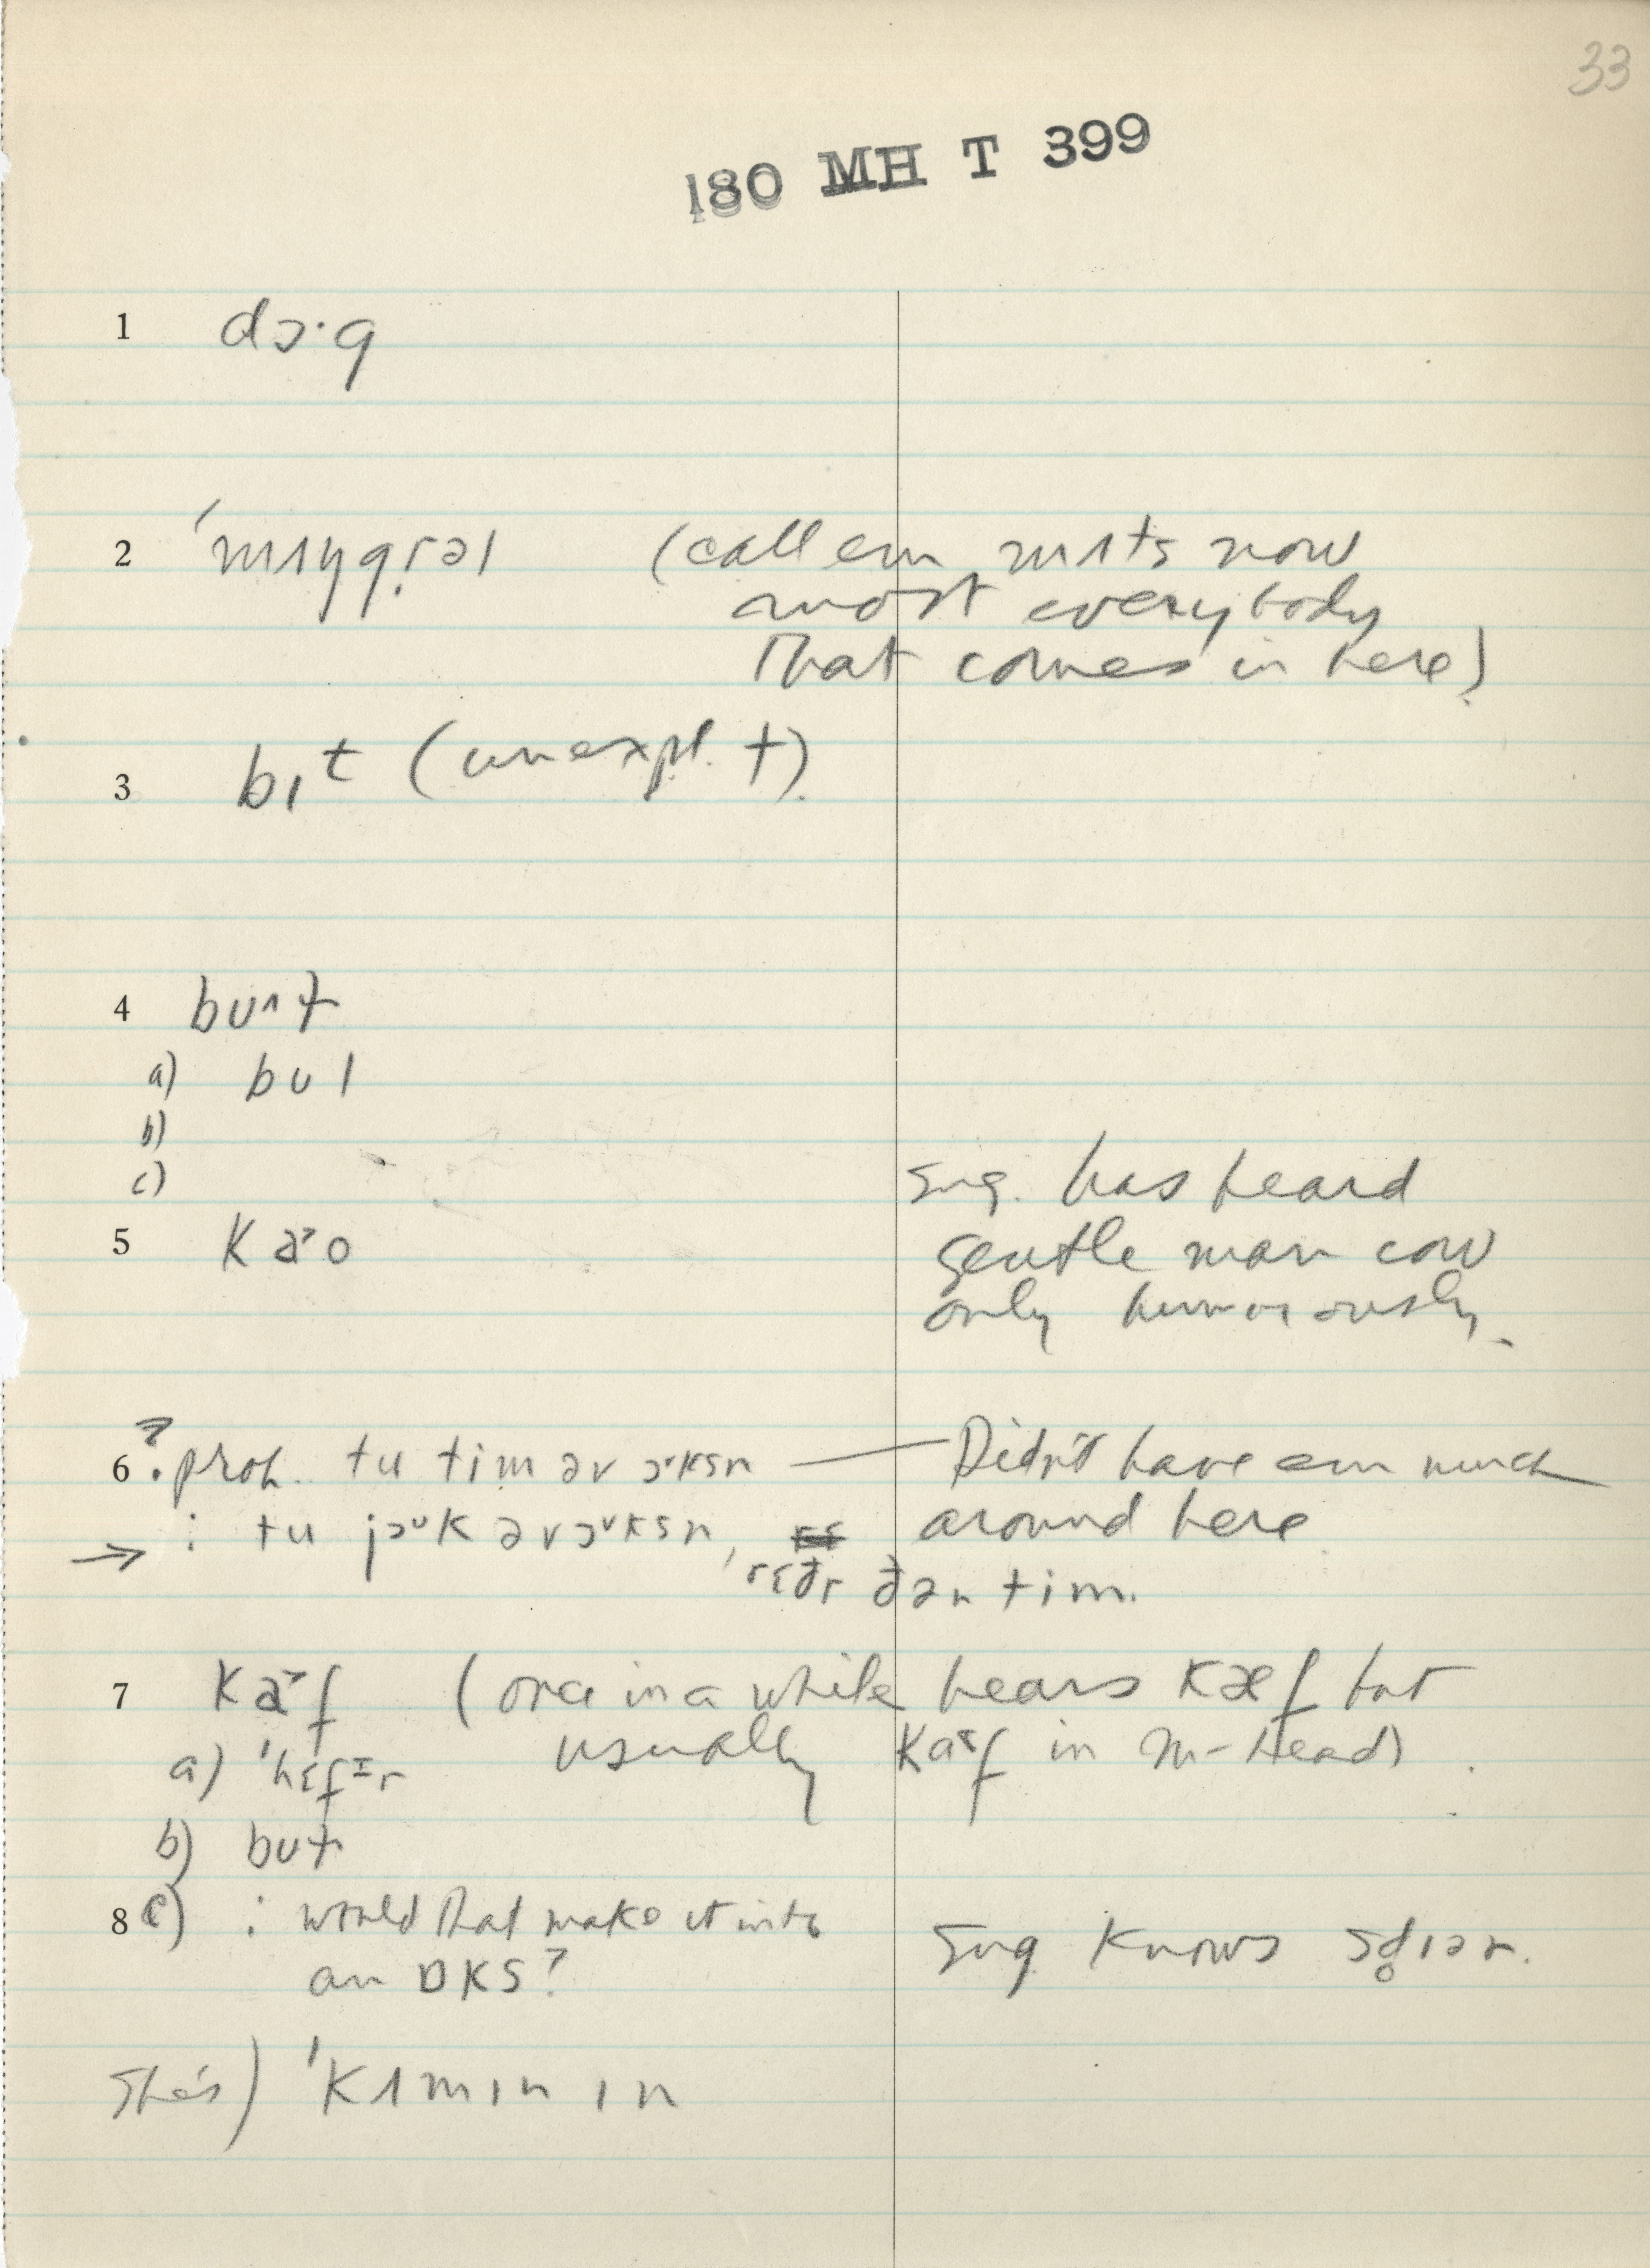 33
180 MH T 399
1 dɔ·g
2 ˈmʌŋgrəl (call em mʌts now
most everybody
that comes in here)
3 bɪt (unexpl. t)
4 bu^ɫ
a) bul
b)
c)
sug. has heard
5 kaˇo gentle man cow
only humorously.
6 ? prob. tu tim əv ɔˇksn — Didn't have em much
: tu jɔᵘk əv ɔˇksn, around here
→ rɛðr ðən tim.
7 kaˇf (once in a while hears kæf but
usually kaˇf in M-Head)
a) ˈhɛfɪr
b) buɫ
8 c) : would that make it into
an ɒks? Sug. knows sd̥ɪər.
She's) ˈkʌmɪn ɪn